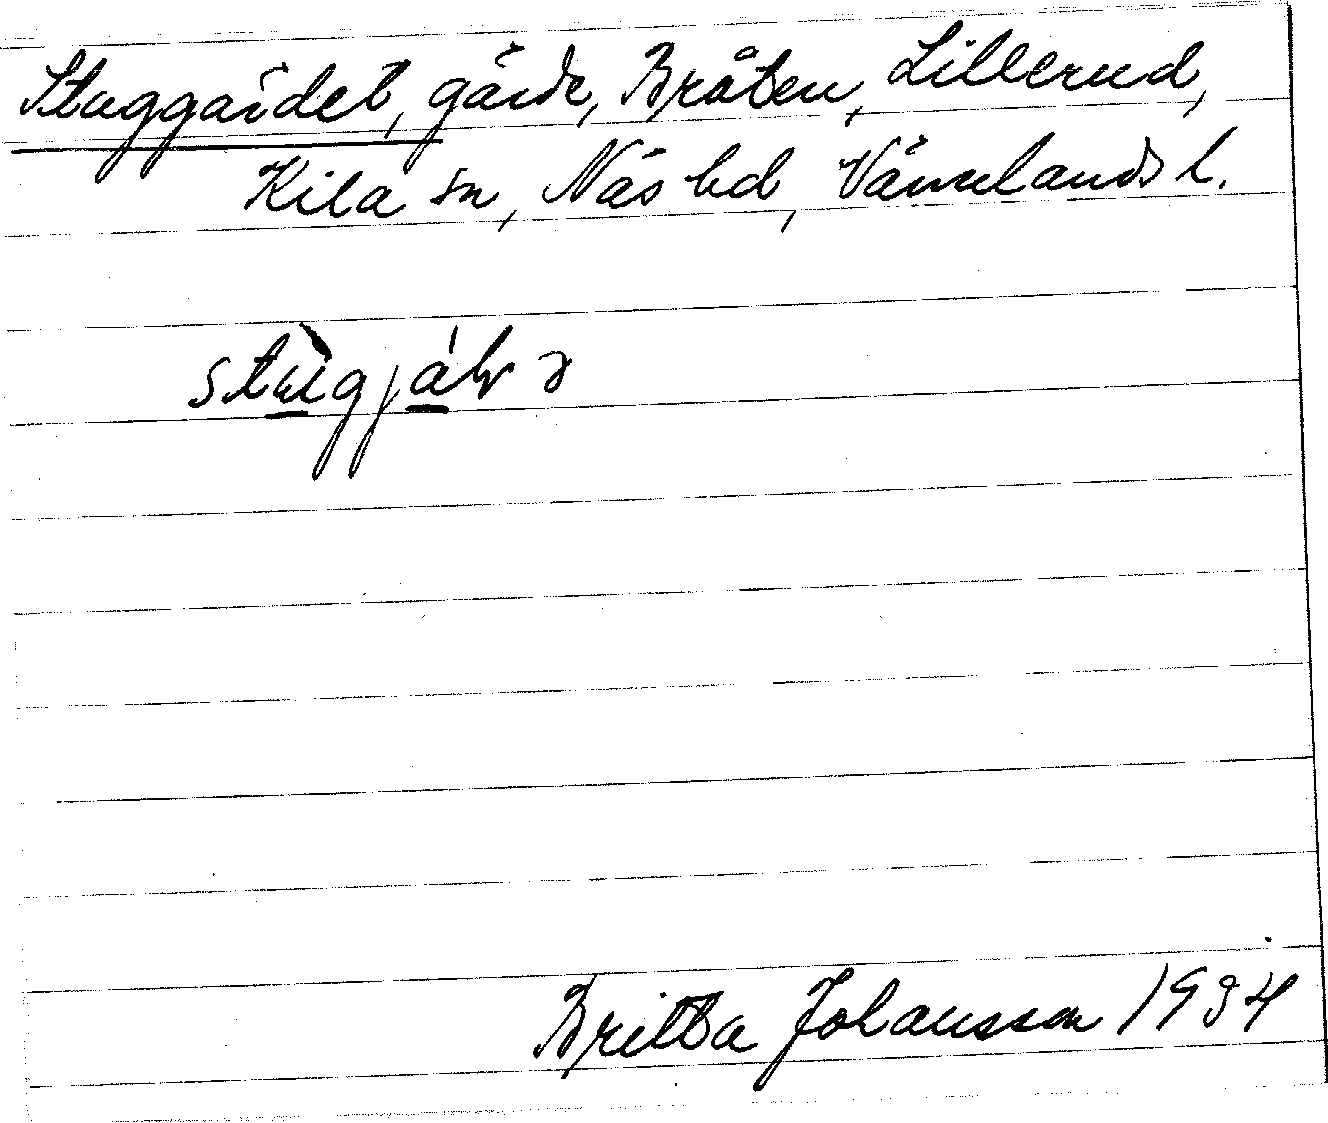 Stuggärdet, gärde, Bråten, Lillerud,
Kila sn, Näs hd, Värmlands l.
Britta Johansson 1934